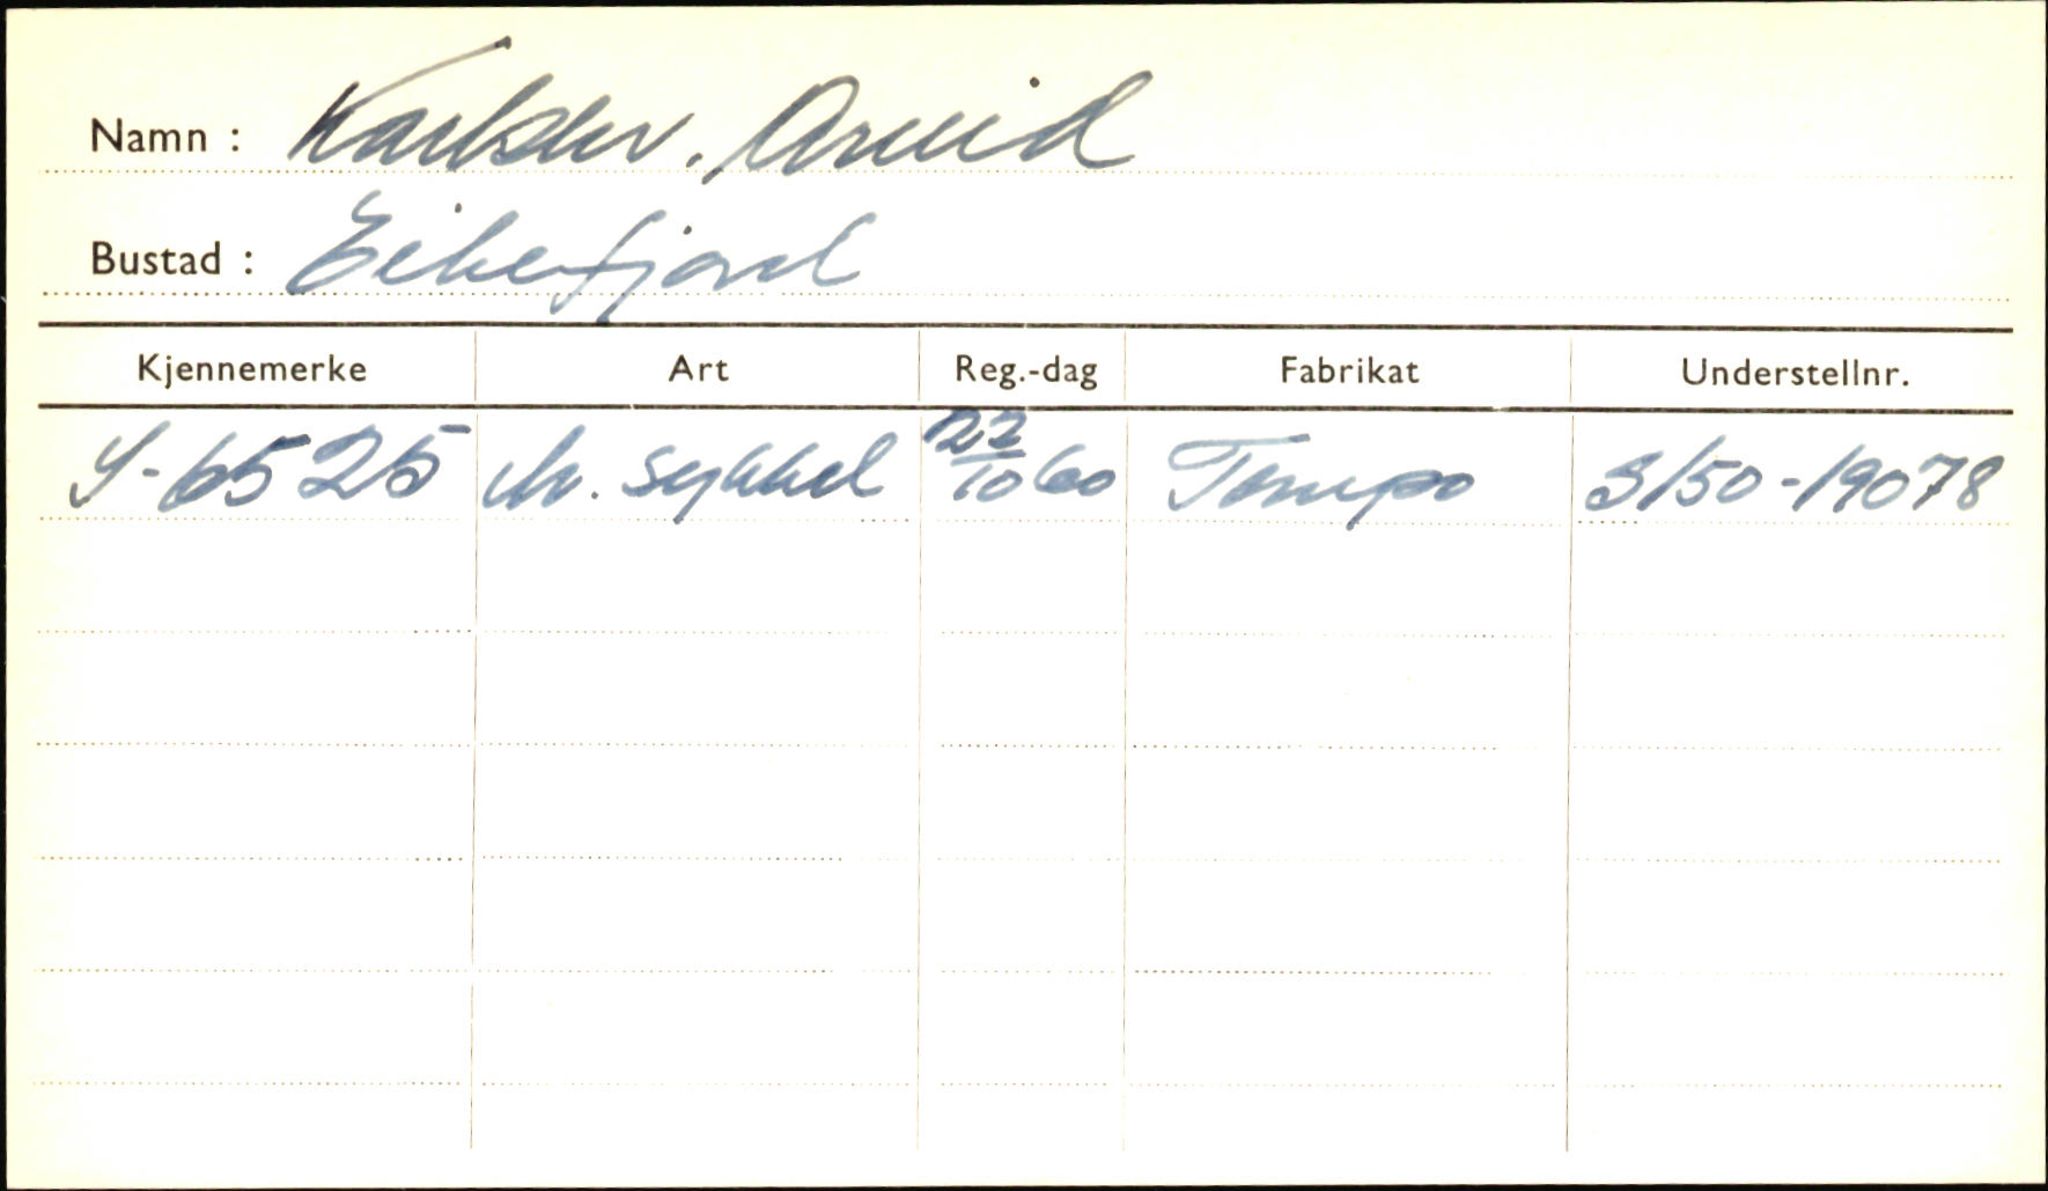 Namn : Karlsen. Arvid
Bustad : Eikefjord
Kjennemerke Art Reg.-dag Fabrikat Understellnr.
S-6525 M. sykkel 22/10 60 Tempo S150-19078